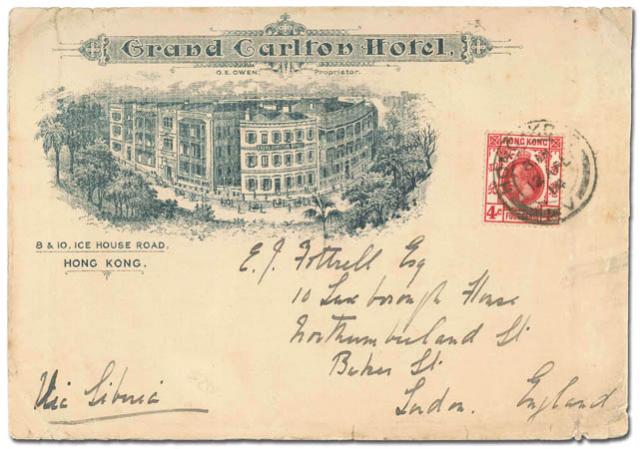 Grand Carlton Hotel.
O.E. OWEN, Proprietor.
8 & 10, ICE HOUSE ROAD.
HONG KONG.
HONG KONG
4c
E. J. Fottrell Esq
10 Luxborough House
Northumberland St
Baker St.
London. England
Via Siberia